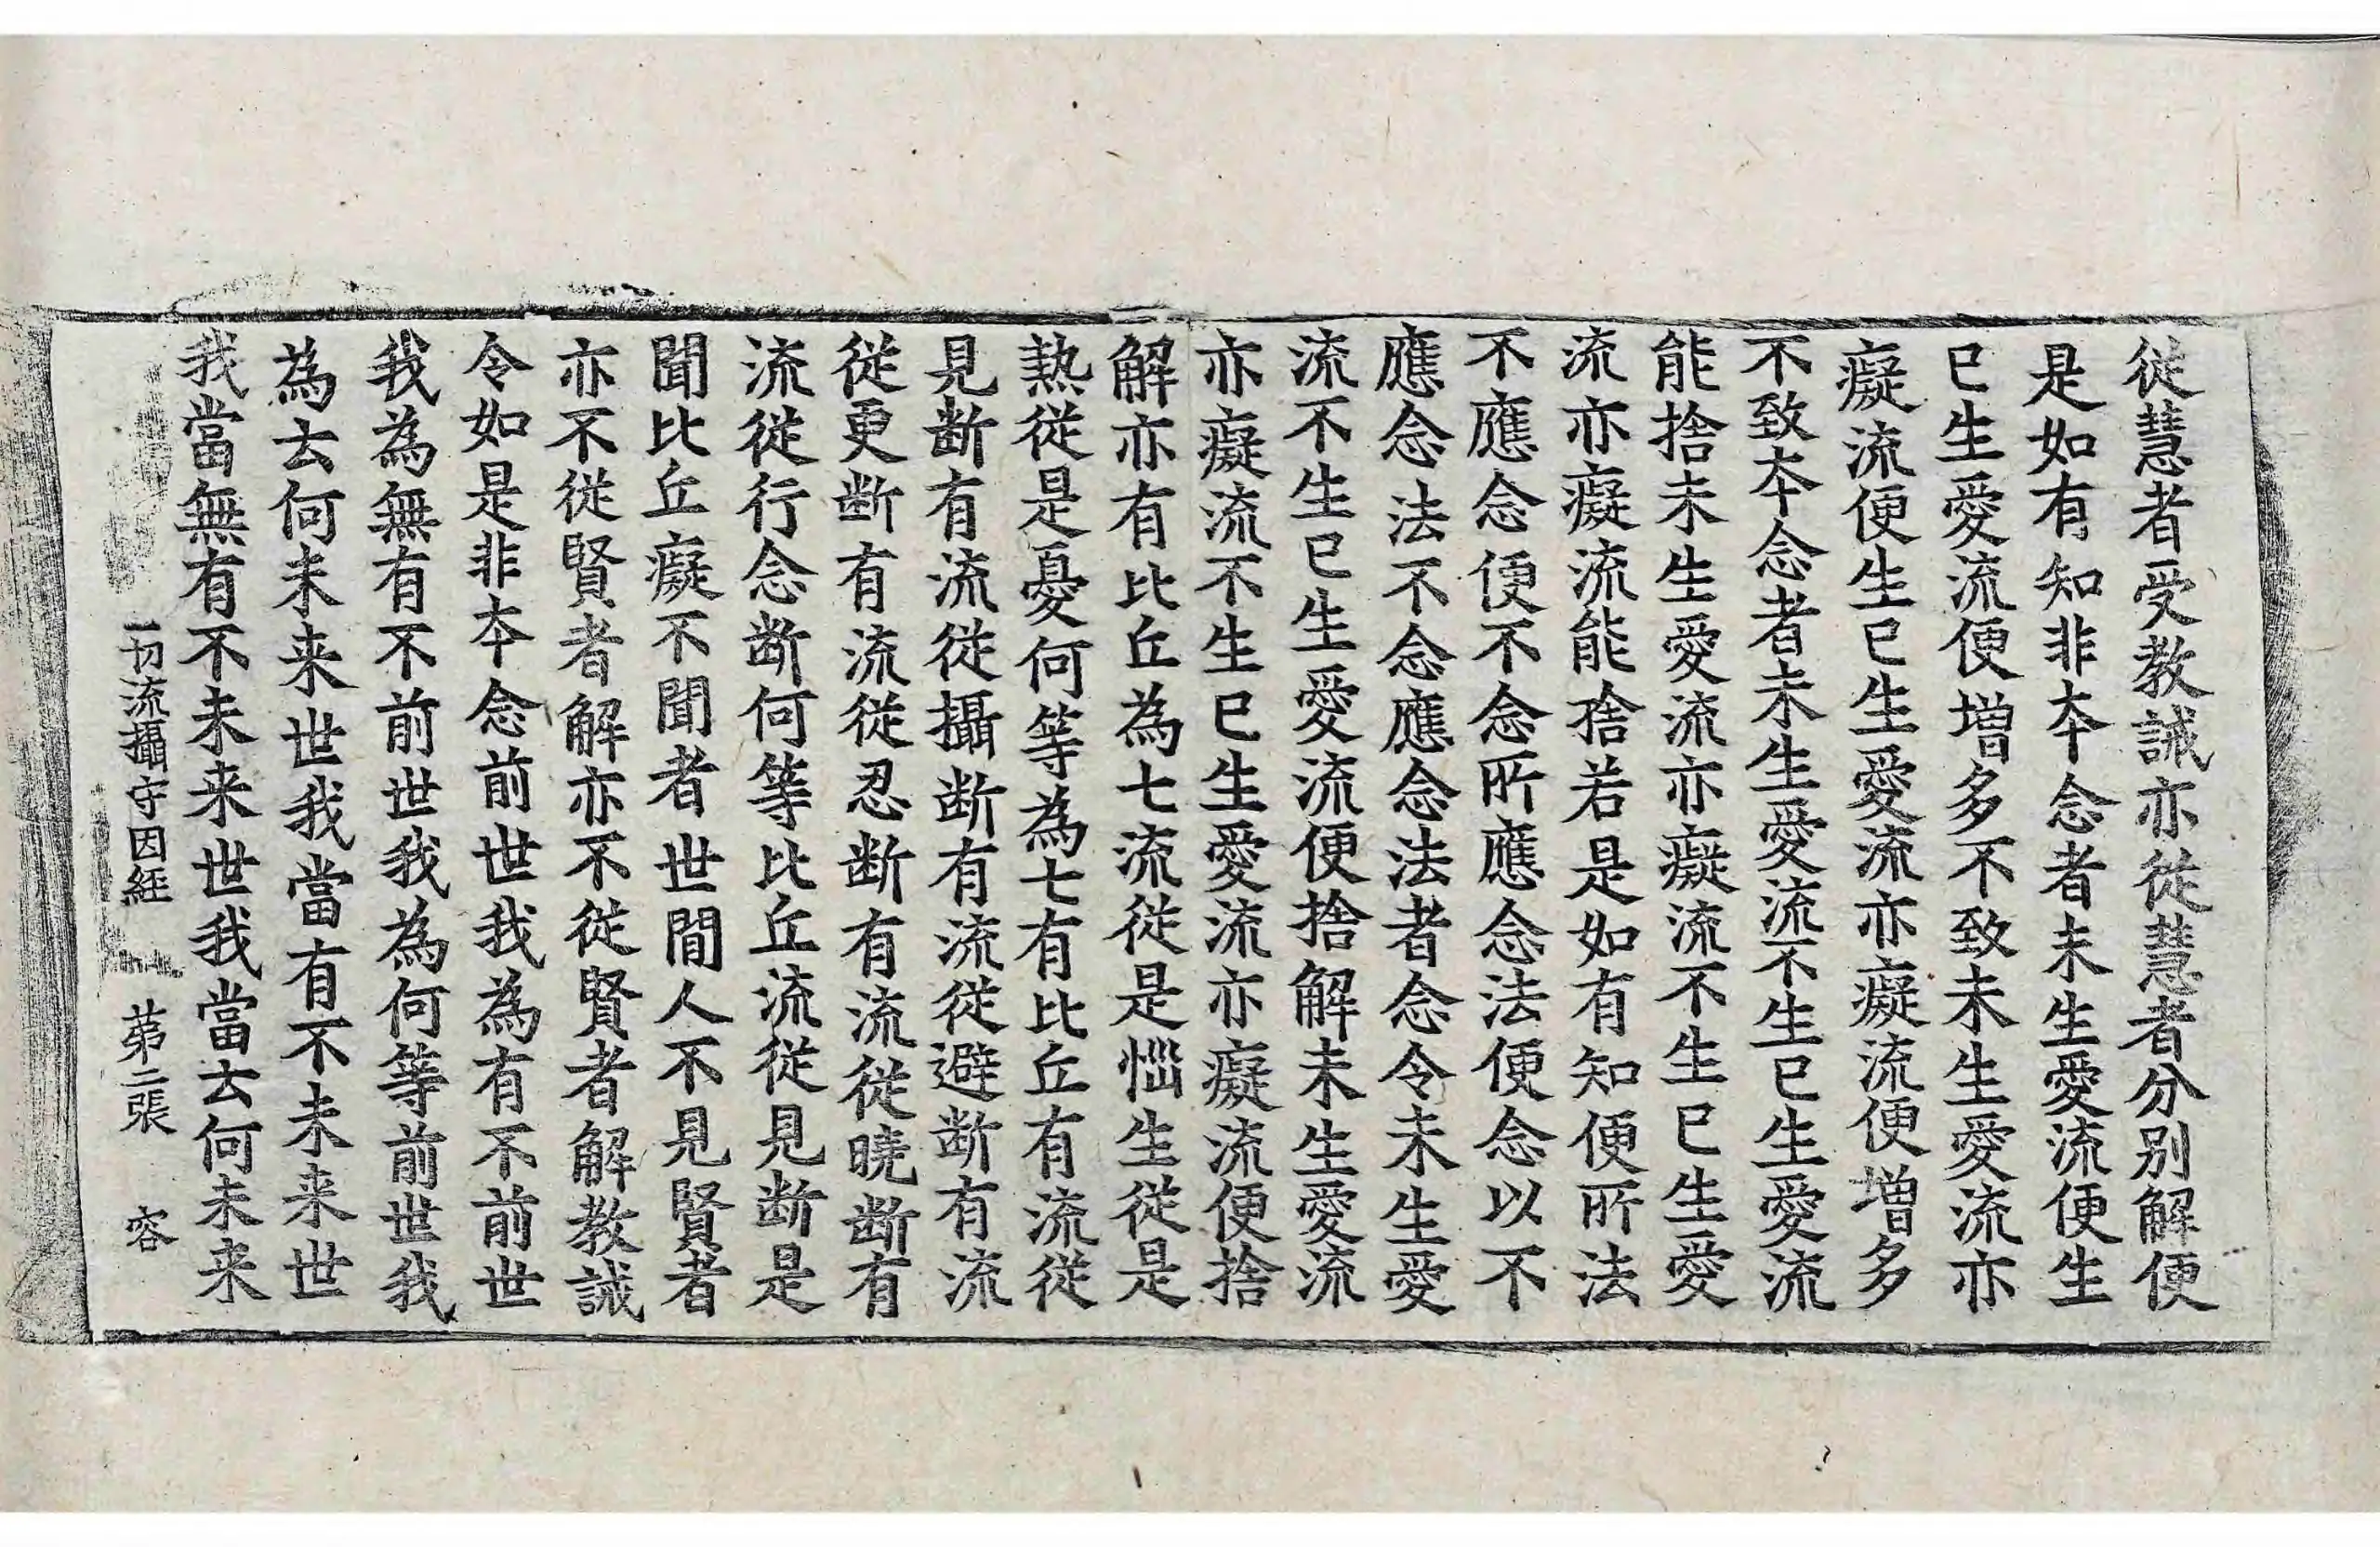 從慧者受教誡亦從慧者分別解便
是如有知非夲念者未生愛流便生
已生愛流便増多不致未生愛流亦
癡流便生已生愛流亦癡流便増多
不致夲念者未生愛流不生已生愛流
能捨未生愛流亦癡流不生已生愛
流亦癡流能捨若是如有知便所法
不應念便不念所應念法便念以不
應念法不念應念法者念令未生愛
流不生已生愛流便捨解未生愛流
亦癡流不生已生愛流亦癡流便捨
解亦有比丘為七流從是惱生從是
熱從是憂何等為七有比丘有流從
見断有流從攝断有流從避断有流
從更断有流從忍断有流從曉断有
流從行念断何等比丘流從見断是
聞比丘癡不聞者世閒人不見賢者
亦不從賢者解亦不從賢者解教誡
令如是非夲念前世我為有不前世
我為無有不前世我為何等前世我
為去何未来世我當有不未来世
我當無有不未来世我當去何未来
一切流攝守因經　第二張　容